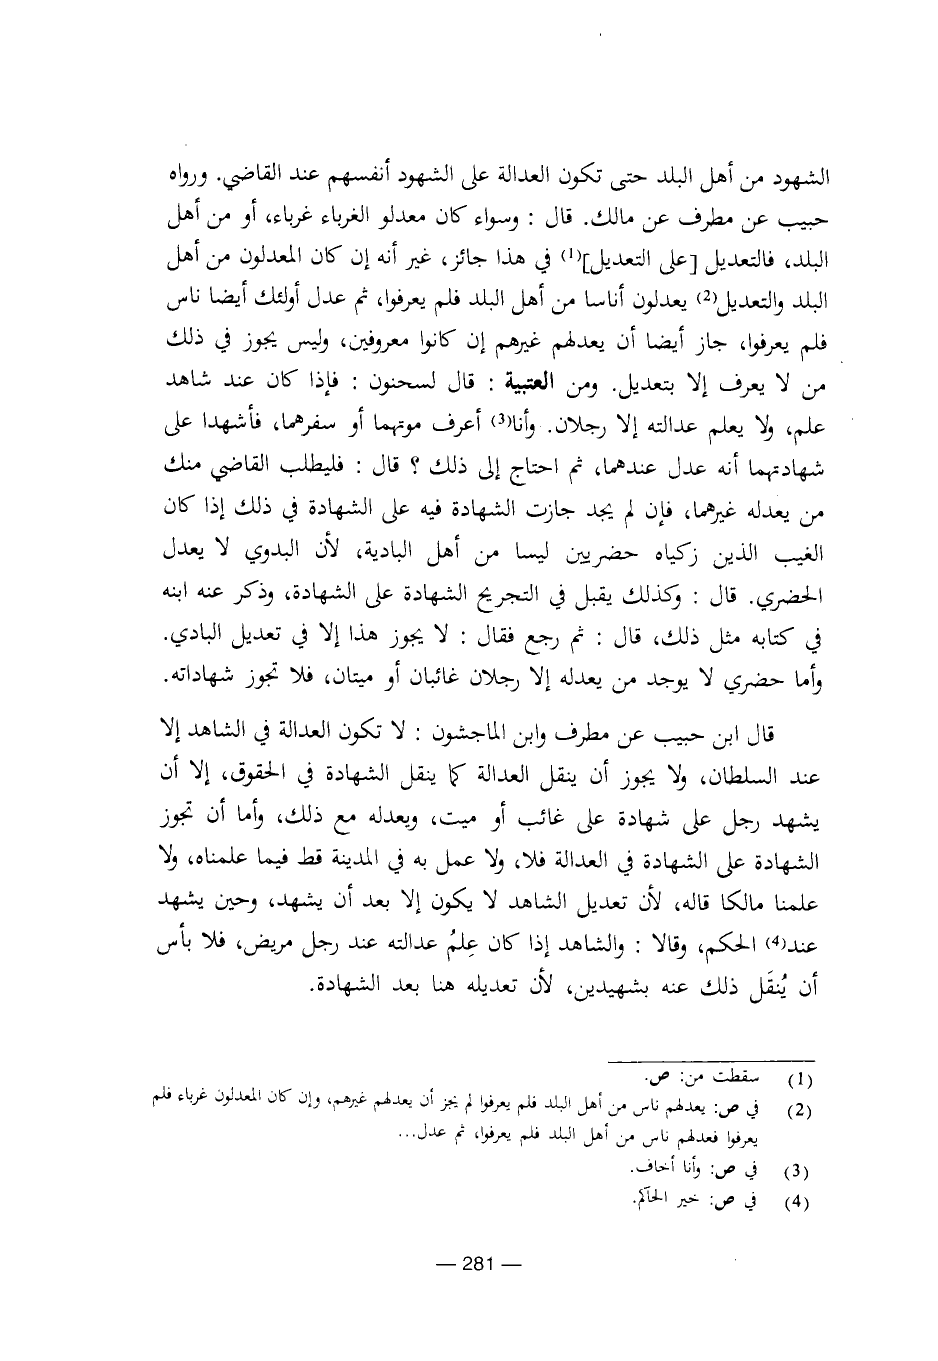 الشهود من أهل البلد حتى تكون العدالة على الشهود أنفسهم عند القاضي. ورواه
حبيب عن مطرف عن مالك. قال : وسواء كان معدلو الغرباء غرباء، أو من أهل
البلد، فالتعديل [على التعديل](1) في هذا جائز، غير أنه إن كان المعدلون من أهل
البلد والتعديل(2) يعدلون أناسا من أهل البلد فلم يعرفوا، ثم عدل أولئك أيضا ناس
فلم يعرفوا، جاز أيضا أن يعدلهم غيرهم إن كانوا معروفين، وليس يجوز في ذلك
من لا يعرف إلا بتعديل. ومن العتبية : قال لسحنون : فإذا كان عند شاهد
علم، ولا يعلم عدالته إلا رجلان. وأنا(3) أعرف موتهما أو سفرهما، فأشهدا على
شهادتهما أنه عدل عندهما، ثم احتاج إلى ذلك ؟ قال : فليطلب القاضي منك
من يعدله غيرهما، فإن لم يجد جازت الشهادة فيه على الشهادة في ذلك إذا كان
الغيب الذين زكياه حضريين ليسا من أهل البادية، لأن البدوي لا يعدل
الحضري. قال : وكذلك يقبل في التجريح الشهادة على الشهادة، وذكر عنه ابنه
في كتابه مثل ذلك، قال : ثم رجع فقال : لا يجوز هذا إلا في تعديل البادي.
وأما حضري لا يوجد من يعدله إلا رجلان غائبان أو ميتان، فلا تجوز شهاداته.
قال ابن حبيب عن مطرف وابن الماجشون : لا تكون العدالة في الشاهد إلا
عند السلطان، ولا يجوز أن ينقل العدالة كما ينقل الشهادة في الحقوق، إلا أن
يشهد رجل على شهادة على غائب أو ميت، ويعدله مع ذلك، وأما أن تجوز
الشهادة على الشهادة في العدالة فلا، ولا عمل به في المدينة قط فيما علمناه، ولا
علمنا مالكا قاله، لأن تعديل الشاهد لا يكون إلا بعد أن يشهد، وحين يشهد
عند(4) الحكم، وقالا : والشاهد إذا كان عِلمُ عدالته عند رجل مريض، فلا بأس
أن يُنقَل ذلك عنه بشهيدين، لأن تعديله هنا بعد الشهادة.
(1) سقطت من: ص.
(2) في ص: يعدلهم ناس من أهل البلد فلم يعرفوا لم يجز أن يعدلهم غيرهم، وإن كان المعدلون غرباء فلم
يعرفوا فعدلهم ناس من أهل البلد فلم يعرفوا، ثم عدل...
(3) في ص: وأنا أخاف.
(4) في ص: خير الحاكم.
— 281 —